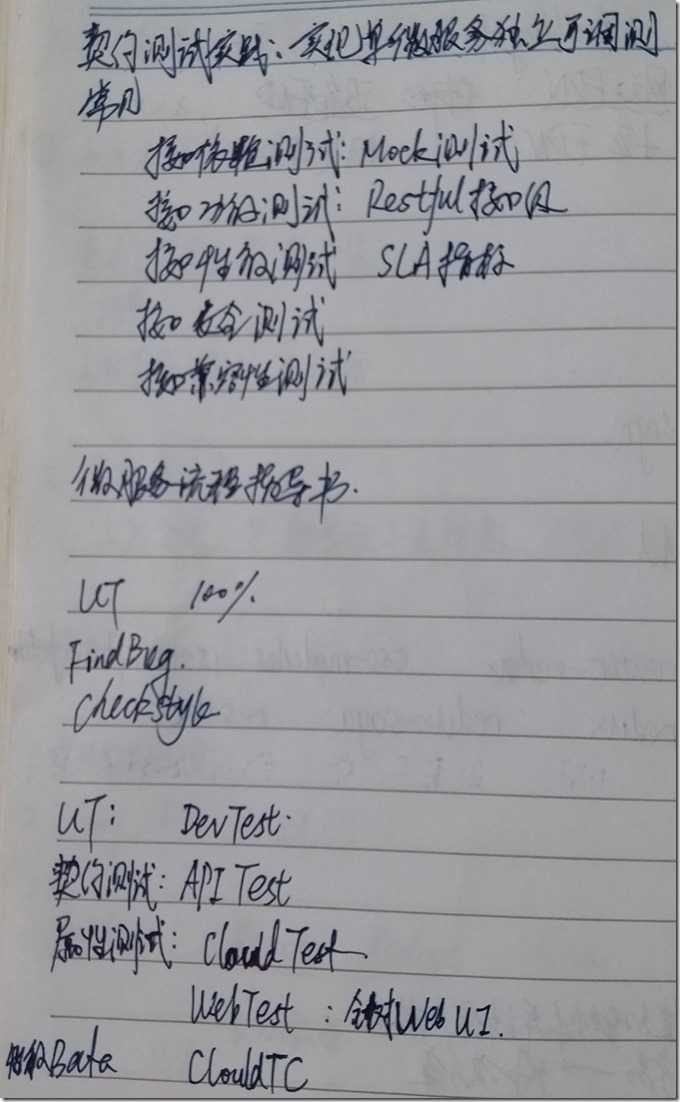 契约测试实践：实现单微服务独立可调测
常见
接口依赖测试：Mock测试
接口功能测试：Restful接口级
接口性能测试 SLA指标
接口安全测试
接口兼容性测试
微服务流程指导书.
UT 100%
FindBug.
Checkstyle
UT： DevTest.
契约测试：API Test
属性测试： Clould Test
WebTest ：针对Web UI.
Bata ClouldTC